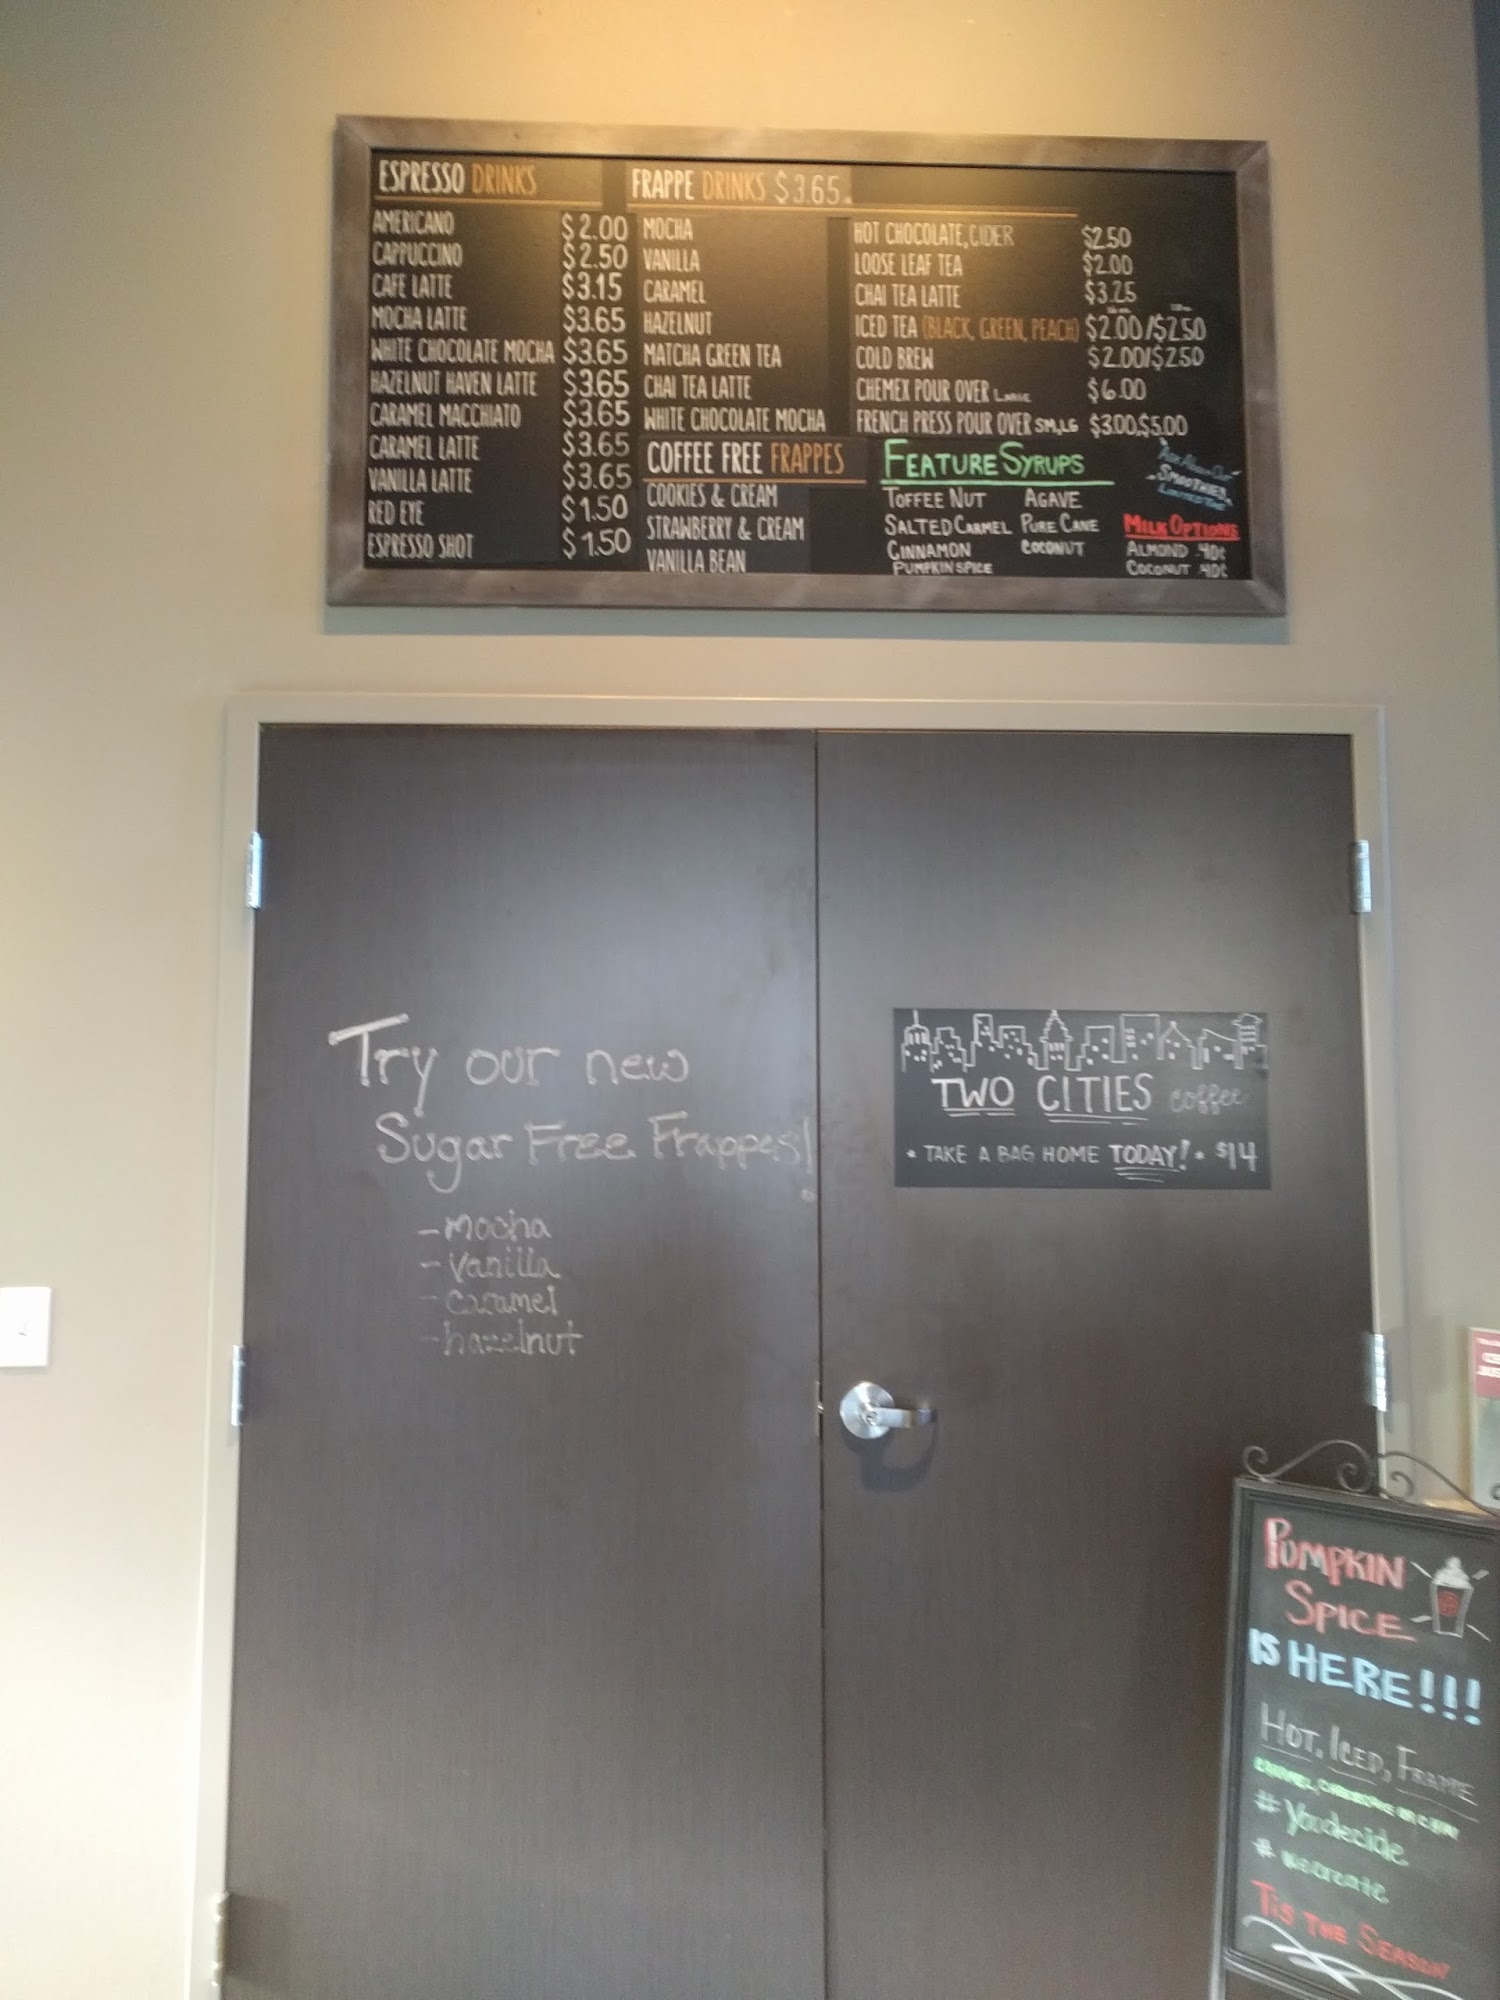 ESPRESSO DRINKS
AMERICANO $2.00
CAPPUCCINO $2.50
CAFE LATTE $3.15
MOCHA LATTE $3.65
WHITE CHOCOLATE MOCHA $3.65
HAZELNUT HAVEN LATTE $3.65
CARAMEL MACCHIATO $3.65
CARAMEL LATTE $3.65
VANILLA LATTE $3.65
RED EYE $1.50
ESPRESSO SHOT $1.50
FRAPPE DRINKS $3.65
MOCHA
VANILLA
CARAMEL
HAZELNUT
MATCHA GREEN TEA
CHAI TEA LATTE
WHITE CHOCOLATE MOCHA
COFFEE FREE FRAPPES
COOKIES & CREAM
STRAWBERRY & CREAM
VANILLA BEAN
HOT CHOCOLATE, CIDER $2.50
LOOSE LEAF TEA $2.00
CHAI TEA LATTE $3.25
ICED TEA (BLACK, GREEN, PEACH) $2.00/$2.50
COLD BREW $2.00/$2.50
CHEMEX POUR OVER LARGE $6.00
FRENCH PRESS POUR OVER SM,LG $3.00,$5.00
FEATURE SYRUPS
TOFFEE NUT AGAVE
SALTED CARMEL PURE CANE
CINNAMON COCONUT
PUMPKIN SPICE
Ask About Our
SMOOTHIES
MILK OPTIONS
ALMOND .40¢
COCONUT .40¢
Try our new
Sugar Free Frappes!
- mocha
- vanilla
- caramel
- hazelnut
TWO CITIES coffee
* TAKE A BAG HOME TODAY! * $14
PUMPKIN
SPICE
IS HERE!!!
HOT, ICED, FRAPPE
# Yoodecide
# wecreate
TIS THE SEASON